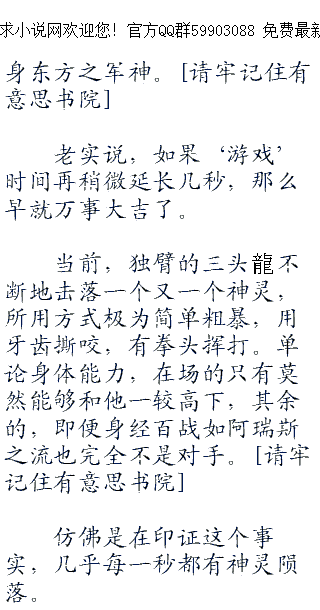 求小说网欢迎您！官方QQ群59903088 免费最新
身东方之军神。[请牢记住有
意思书院]
老实说，如果‘游戏’
时间再稍微延长几秒，那么
早就万事大吉了。
当前，独臂的三头龍不
断地击落一个又一个神灵，
所用方式极为简单粗暴，用
牙齿撕咬，有拳头挥打。单
论身体能力，在场的只有莫
然能够和他一较高下，其余
的，即便身经百战如阿瑞斯
之流也完全不是对手。[请牢
记住有意思书院]
仿佛是在印证这个事
实，几乎每一秒都有神灵陨
落。